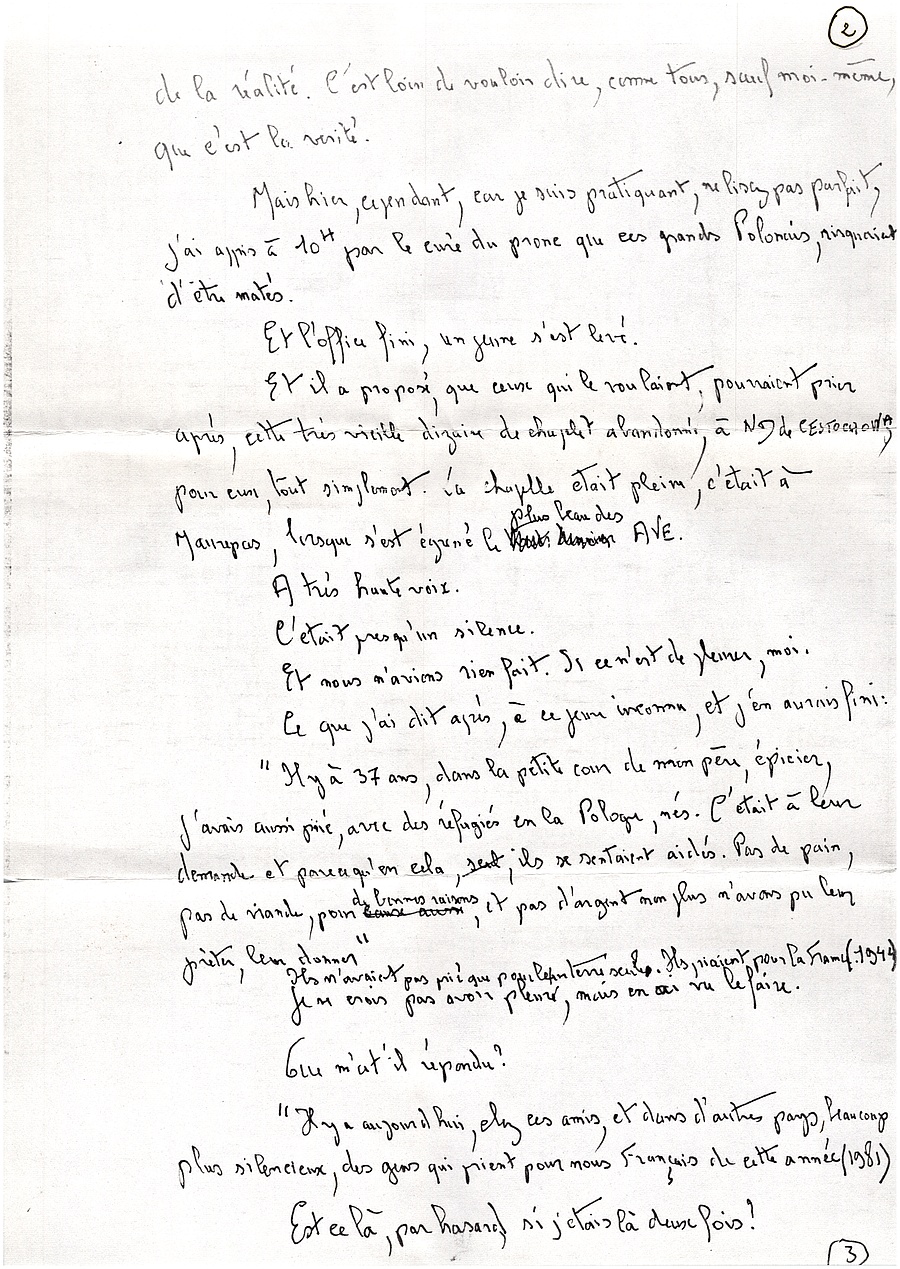 2
de la réalité. C'est loin de vouloir dire, comme tous, sauf moi-même,
que c'est la vérité.
Mais hier, cependant, car je suis pratiquant, ne lisez pas parfait,
j'ai appris à 10H par le curé du prone que ces grands Polonais, risquaient
d'être matés.
Et l'office fini, un jeune s'est levé.
Et il a proposé, que ceux qui le voulaient, pourraient prier
après, cette très vieille dizaine de chapelet abandonné, à ND de CESTOCHOWA,
pour eux, tout simplement. La chapelle était pleine, c'était à
plus beau des
Maurepas, lorsque s'est égrené le AVE.
A très haute voix.
C'était presqu'un silence.
Et nous n'avions rien fait. Si ce n'est de pleurer, moi.
Ce que j'ai dit après, à ce jeune inconnu, et j'en aurais fini:
"Il y à 37 ans, dans la petite cour de mon père, épicier,
j'avais aussi prié, avec des réfugiés en la Pologne, nés. C'était à leur
demande et parcequ'en cela, seul, ils se sentaient aidés. Pas de pain,
de bonnes raisons
pas de viande, pour , et pas d'argent non plus n'avons pu leur
prêter, leur donner"
Ils n'avaient pas prié que pour leur terre seule. Ils priaient pour la France (1944)
Je ne crois pas avoir pleuré, mais en ai vu le faire.
Que m'at'il répondu?
"Il y a aujourd'hui, chez ces amis, et dans d'autres pays, beaucoup
plus silencieux, des gens qui prient pour nous Français de cette année (1981)
Est ce là, par hasard, si j'étais là deux fois?
3